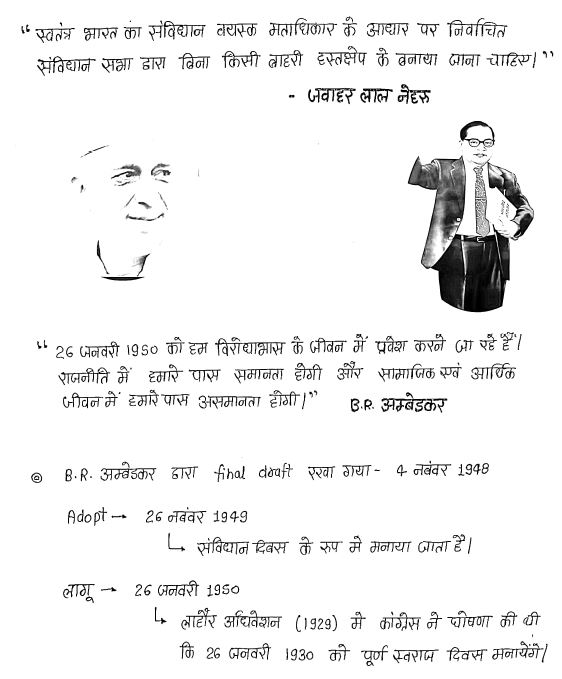 “ स्वतंत्र भारत का संविधान वयस्क मताधिकार के आधार पर निर्वाचित
संविधान सभा द्वारा बिना किसी बाहरी हस्तक्षेप के बनाया जाना चाहिए।”
- जवाहर लाल नेहरु
“ 26 जनवरी 1950 को हम विरोधाभास के जीवन में प्रवेश करने जा रहे हैं।
राजनीति में हमारे पास समानता होगी और सामाजिक एवं आर्थिक
जीवन में हमारे पास असमानता होगी।” B.R. अम्बेडकर
◎ B.R. अम्बेडकर द्वारा final draft रखा गया - 4 नवंबर 1948
Adopt → 26 नवंबर 1949
↳ संविधान दिवस के रुप मे मनाया जाता है।
लागू → 26 जनवरी 1950
↳ लाहौर अधिवेशन (1929) मे कांग्रेस ने घोषणा की थी
कि 26 जनवरी 1930 को पूर्ण स्वराज दिवस मनायेंगे।